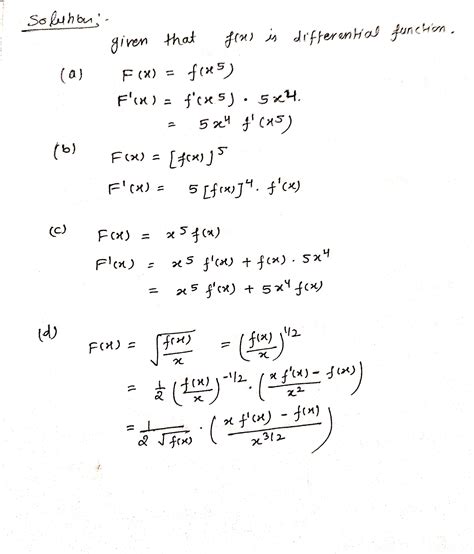 Solution:-
given that f(x) is differential function.
(a) F(x) = f(x⁵)
F'(x) = f'(x⁵) · 5x⁴.
= 5x⁴ f'(x⁵)
(b) F(x) = [f(x)]⁵
F'(x) = 5[f(x)]⁴. f'(x)
(c) F(x) = x⁵ f(x)
F'(x) = x⁵ f'(x) + f(x) · 5x⁴
= x⁵ f'(x) + 5x⁴ f(x)
(d) F(x) = √(f(x)/x) = (f(x)/x)^1/2
= 1/2 (f(x)/x)^-1/2 · (x f'(x) - f(x) / x²)
= 1/2√f(x) · (x f'(x) - f(x) / x^3/2)